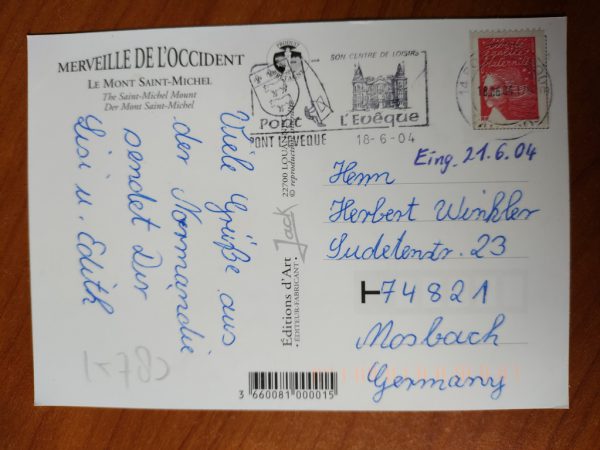 MERVEILLE DE L'OCCIDENT
LE MONT SAINT-MICHEL
The Saint-Michel Mount
Der Mont Saint-Michel
Viele Grüße aus
der Normandie
sendet Dir
Lisi u. Edith
SON CENTRE DE LOISIRS
Pont L'Evêque
PONT L'EVEQUE 18-6-04
Liberté
égalité
fraternité
Eing. 21.6.04
Herrn
Herbert Winkler
Sudetenstr. 23
T 74821
Mosbach
Germany
Editions d'Art Jack
• ÉDITEUR-FABRICANT •
22700 LOUANNEC
© reproduction
3 660081 000015